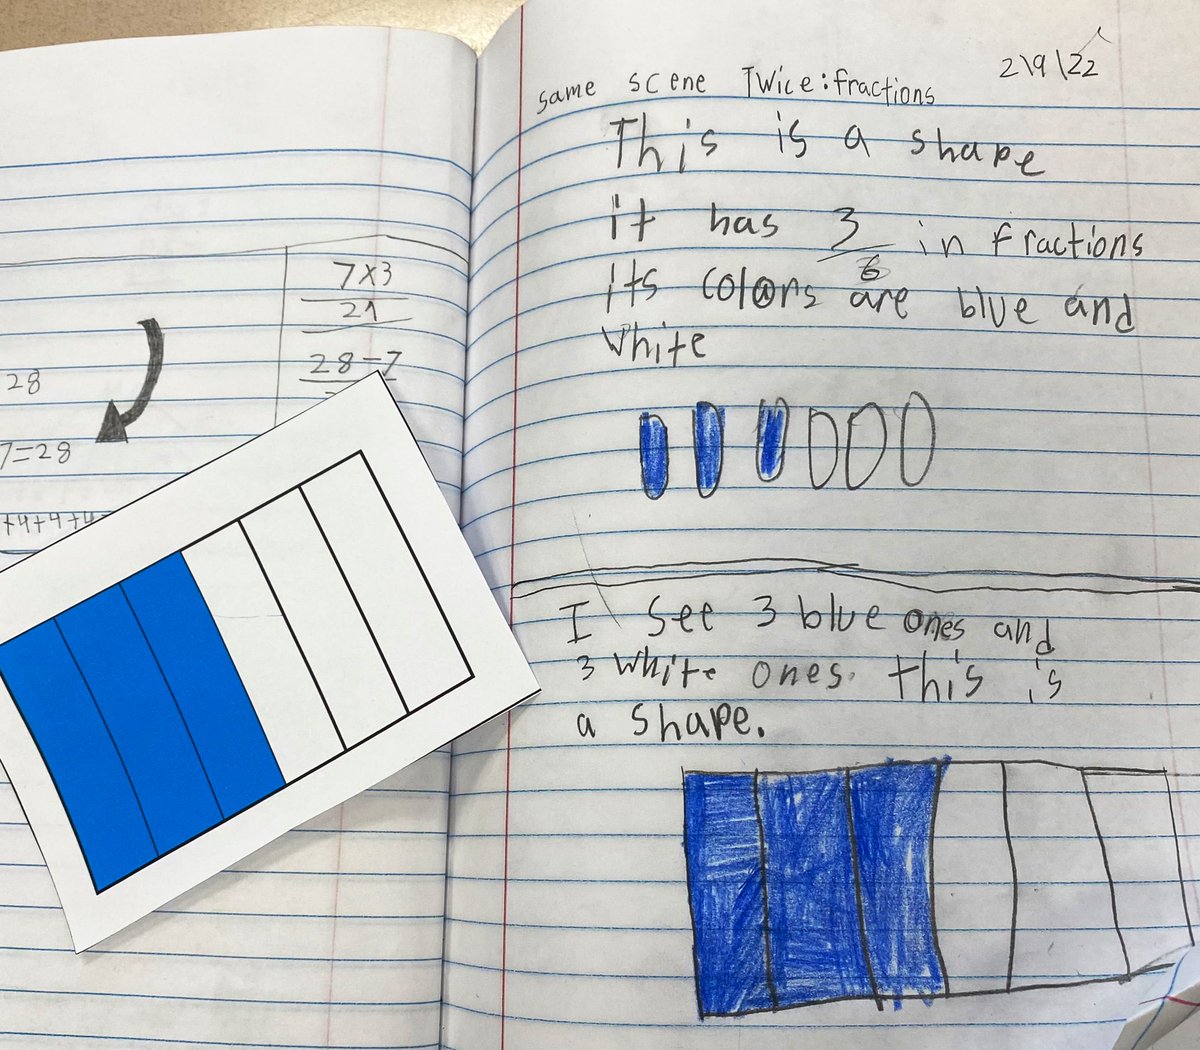 7x3
21
28-7
28
7=28
+4+4+4=
2\9\22
same scene Twice: fractions
This is a shape
it has 3/6 in fractions
Its colors are blue and
White
I See 3 blue ones and
3 white ones. this is
a shape.